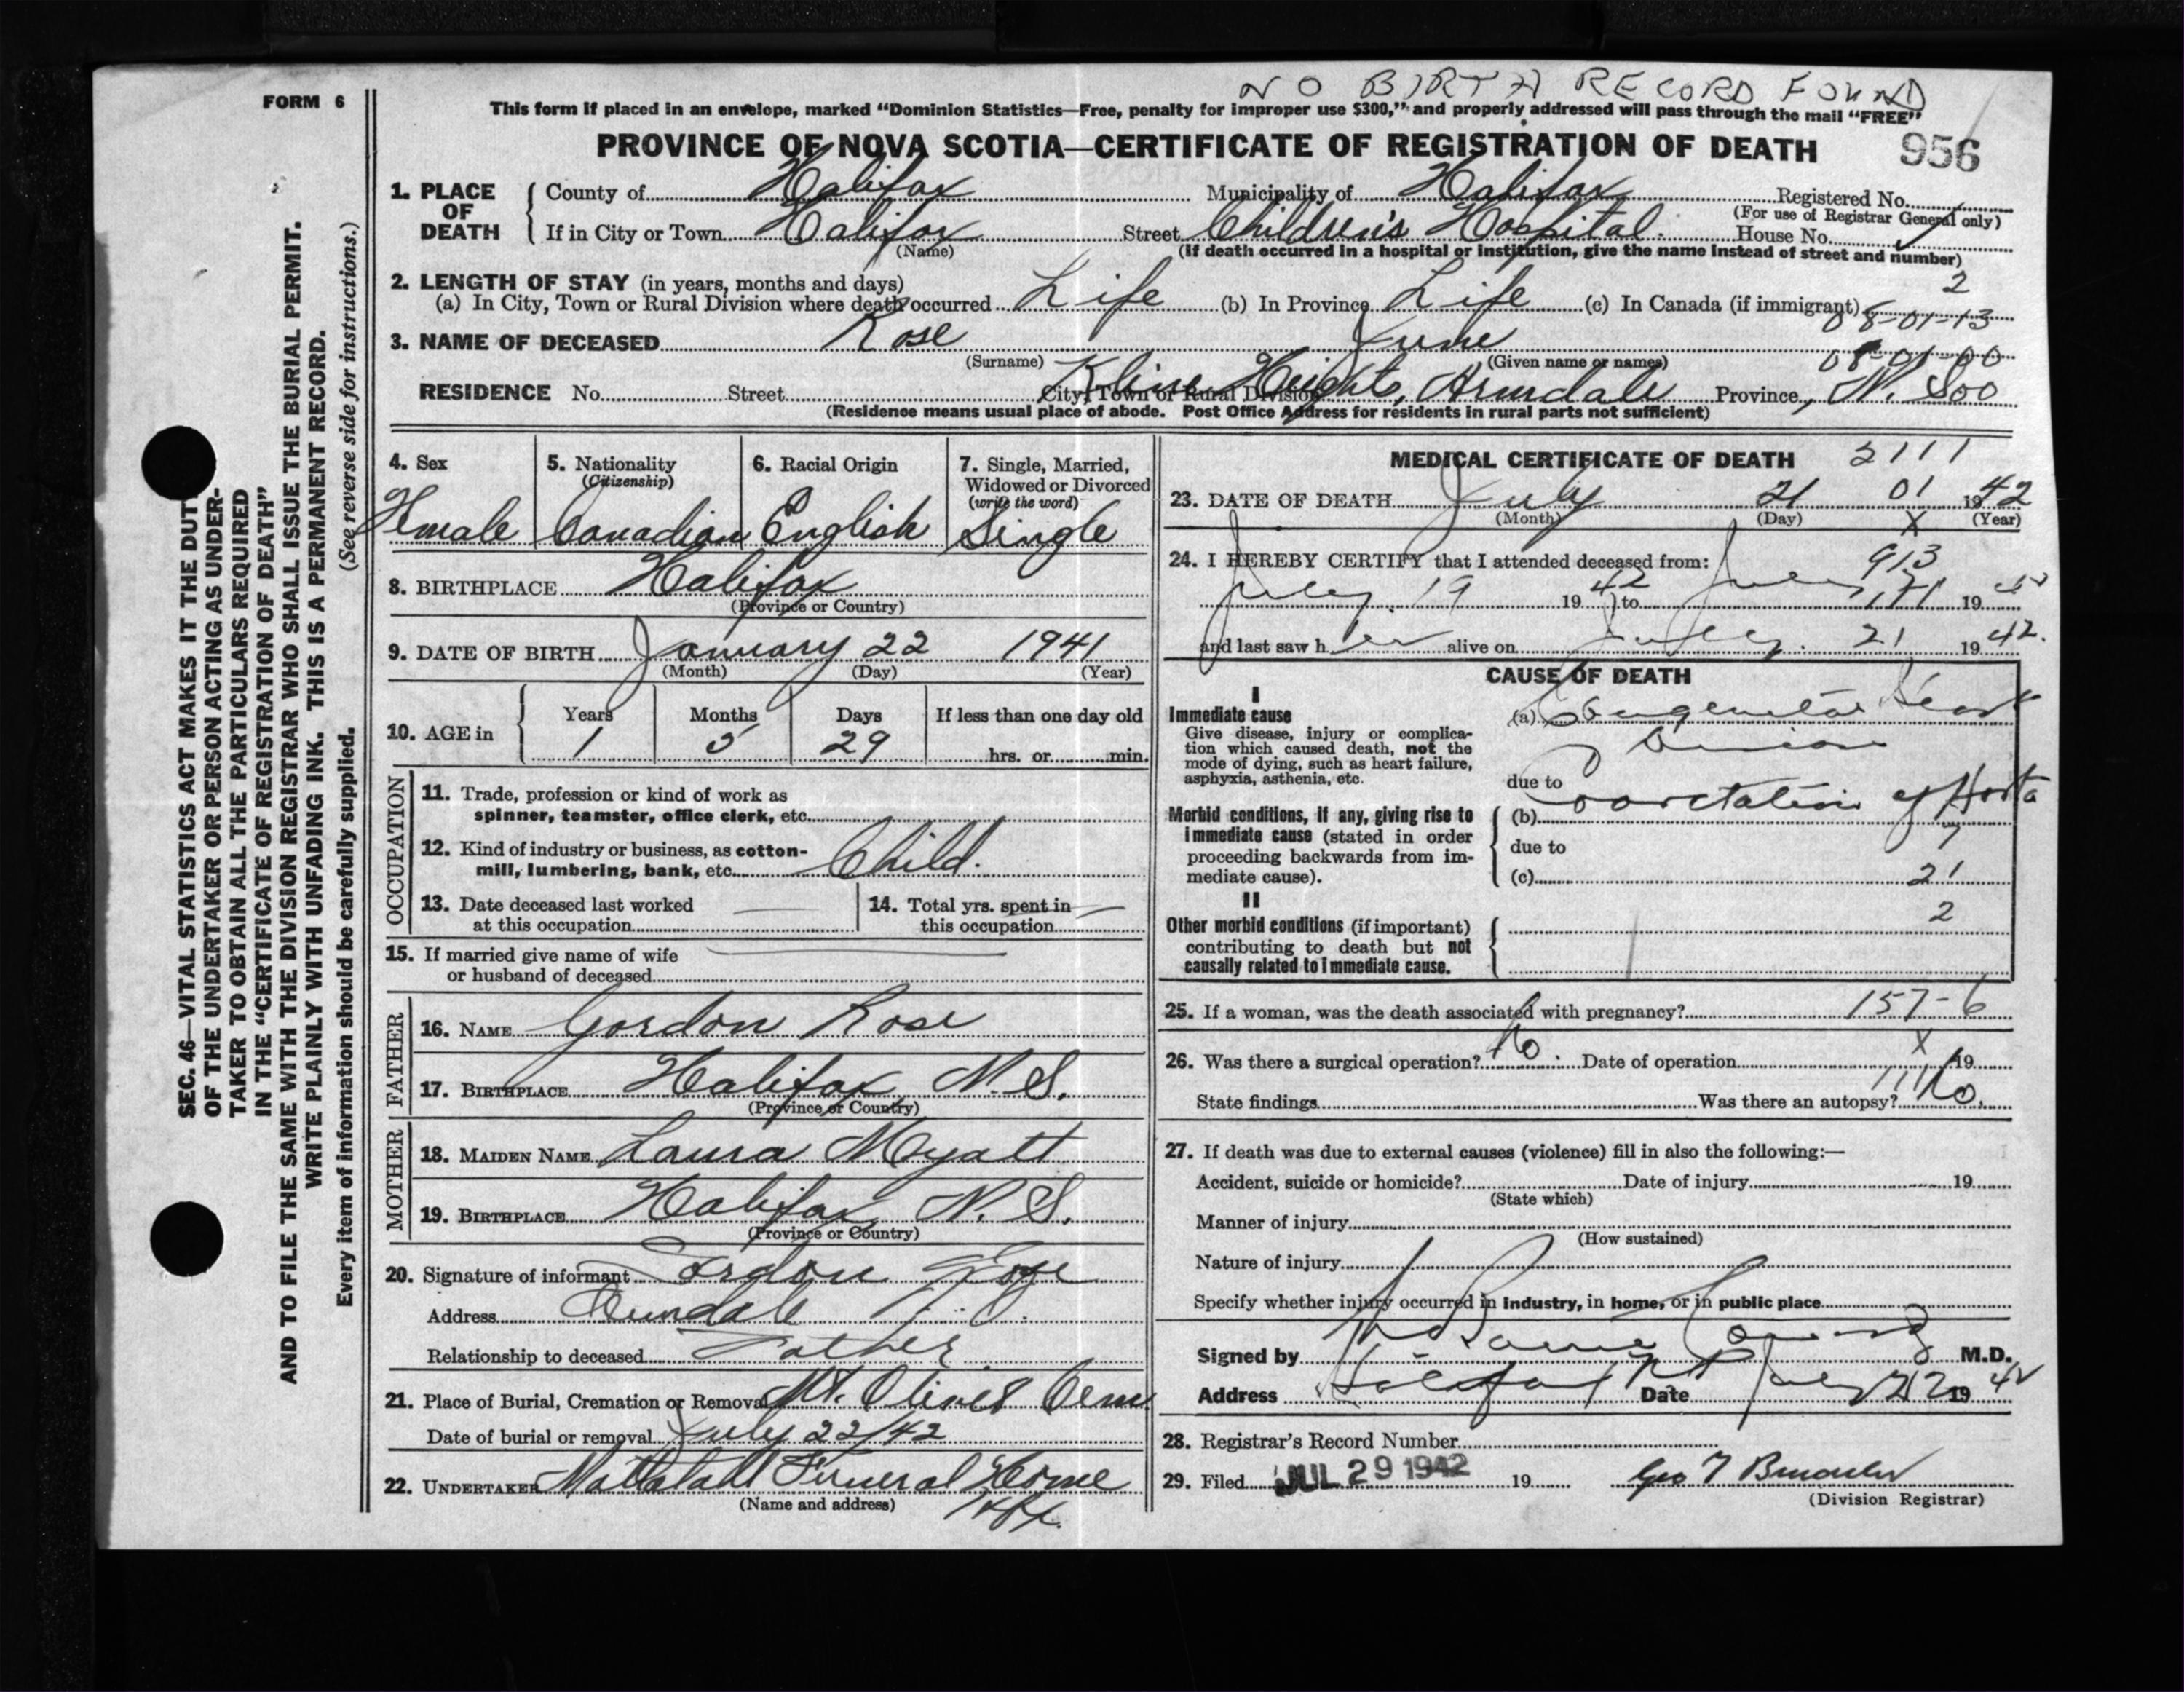 NO BIRTH RECORD FOUND
FORM 6
This form if placed in an envelope, marked "Dominion Statistics—Free, penalty for improper use $300," and properly addressed will pass through the mail "FREE"
PROVINCE OF NOVA SCOTIA—CERTIFICATE OF REGISTRATION OF DEATH 956
1. PLACE OF DEATH County of Halifax Municipality of Halifax Registered No.
(For use of Registrar General only)
If in City or Town Halifax Street Children's Hospital House No.
(Name) (If death occurred in a hospital or institution, give the name instead of street and number)
2. LENGTH OF STAY (in years, months and days) 2
(a) In City, Town or Rural Division where death occurred Life (b) In Province Life (c) In Canada (if immigrant) 08-01-13
3. NAME OF DECEASED Rose June
(Surname) (Given name or names) 08-01-00
RESIDENCE No. Street City, Town or Rural Division Kline Heights, Armdale Province, N. S00
(Residence means usual place of abode. Post Office Address for residents in rural parts not sufficient)
4. Sex Female
5. Nationality (Citizenship) Canadian
6. Racial Origin English
7. Single, Married, Widowed or Divorced (write the word) Single
8. BIRTHPLACE Halifax
(Province or Country)
9. DATE OF BIRTH January 22 1941
(Month) (Day) (Year)
10. AGE in Years 1 Months 5 Days 29 If less than one day old
hrs. or min.
OCCUPATION
11. Trade, profession or kind of work as
spinner, teamster, office clerk, etc.
12. Kind of industry or business, as cotton-
mill, lumbering, bank, etc. Child.
13. Date deceased last worked
at this occupation
14. Total yrs. spent in
this occupation
15. If married give name of wife
or husband of deceased
FATHER
16. NAME Gordon Rose
17. BIRTHPLACE Halifax N.S.
(Province or Country)
MOTHER
18. MAIDEN NAME Laura Myatt
19. BIRTHPLACE Halifax N.S.
(Province or Country)
20. Signature of informant Gordon Rose
Address Armdale N.S.
Relationship to deceased Father
21. Place of Burial, Cremation or Removal Mt. Olivet Cem
Date of burial or removal July 22/42
22. UNDERTAKER Nattatall Funeral Home
(Name and address) Hfx.
MEDICAL CERTIFICATE OF DEATH 2111
23. DATE OF DEATH July 21 01 1942
(Month) (Day) X (Year)
24. I HEREBY CERTIFY that I attended deceased from: 913
July 19 1942 to July 19
and last saw her alive on July 21 1942.
CAUSE OF DEATH
I
Immediate cause
Give disease, injury or complica-
tion which caused death, not the
mode of dying, such as heart failure,
asphyxia, asthenia, etc.
(a) Congenital Heart
Disease
due to
Morbid conditions, if any, giving rise to
immediate cause (stated in order
proceeding backwards from im-
mediate cause).
(b) Coarctation of Aorta
due to 7
(c) 21
II
Other morbid conditions (if important)
contributing to death but not
causally related to immediate cause.
2
25. If a woman, was the death associated with pregnancy? 157-6
26. Was there a surgical operation? No. Date of operation X 19
State findings Was there an autopsy? No.
27. If death was due to external causes (violence) fill in also the following:—
Accident, suicide or homicide? Date of injury 19
(State which)
Manner of injury
(How sustained)
Nature of injury
Specify whether injury occurred in industry, in home, or in public place
Signed by M.D.
Address Halifax NS Date July 1942
28. Registrar's Record Number
29. Filed JUL 29 1942 19
(Division Registrar)
SEC. 46—VITAL STATISTICS ACT MAKES IT THE DUTY
OF THE UNDERTAKER OR PERSON ACTING AS UNDER-
TAKER TO OBTAIN ALL THE PARTICULARS REQUIRED
IN THE "CERTIFICATE OF REGISTRATION OF DEATH"
AND TO FILE THE SAME WITH THE DIVISION REGISTRAR WHO SHALL ISSUE THE BURIAL PERMIT.
WRITE PLAINLY WITH UNFADING INK. THIS IS A PERMANENT RECORD.
Every item of information should be carefully supplied. (See reverse side for instructions.)